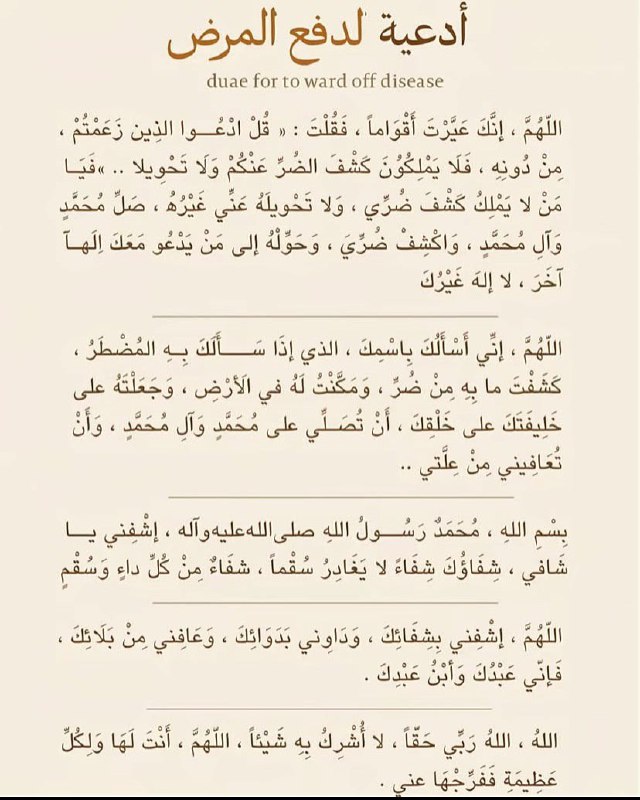 أدعية لدفع المرض
duae for to ward off disease
اللّهُمَّ ، إنَّكَ عَيَّرْتَ أَقْوَاماً ، فَقُلْتَ : « قُلْ ادْعُـــوا الذِين زَعَمْتُمْ ،
مِنْ دُونِهِ ، فَلَا يَمْلِكُونَ كَشْفَ الضُرِّ عَنْكُمْ وَلَا تَحْوِيلا .. »فَيَـا
مَنْ لا يَمْلِكُ كَشْفَ ضُرِّي ، وَلا تَحْوِيلَهُ عَنِّي غَيْرُهُ ، صَلِّ مُحَمَّدٍ
وَآلِ مُحَمَّدٍ ، وَاكْشِفْ ضُرِّيَ ، وَحَوِّلْهُ إلى مَنْ يَدْعُو مَعَكَ اِلَهـاً
آخَرَ ، لا إلهَ غَيْرُكَ
اللّهُمَّ ، إنِّي أَسْأَلُكَ بِاسْمِكَ ، الذي إذَا سَـــأَلَكَ بِـهِ المُضْطَرُ ،
كَشَفْتَ ما بِهِ مِنْ ضُرٍّ ، وَمَكَّنْتُ لَهُ في الأَرْضِ ، وَجَعَلْتَهُ على
خَلِيفَتَكَ على خَلْقِكَ ، أَنْ تُصَـلِّي على مُحَمَّدٍ وَآلِ مُحَمَّدٍ ، وَأَنْ
تُعَافِيني مِنْ عِلَّتي ..
بِسْمِ اللهِ ، مُحَمَدٌ رَسُـــولُ اللهِ صلى‌الله‌عليه‌وآله ، إشْفِني يـــا
شَافي ، شِفَاؤُكَ شِفَاءً لا يَغَادِرُ سُقْماً ، شفَاءُ مِنْ كُلِّ داءٍ وَسُقْمٍ
اللّهُمَّ ، إشْفِني بِشِفَائِكَ ، وَدَاوِني بَدَوَائِكَ ، وَعَافِني مِنْ بَلَائِكَ ،
فَإنّي عَبْدُكَ وَأبْنُ عَبْدِكَ .
اللهُ ، اللهُ رَبِّي حَقّاً ، لا أُشْرِكُ بِهِ شَيْئاً ، اللّهُمَّ ، أَنْتَ لَهَا وَلِكُلِّ
عَظِيمَةِ فَفَرِّجْهَا عني .